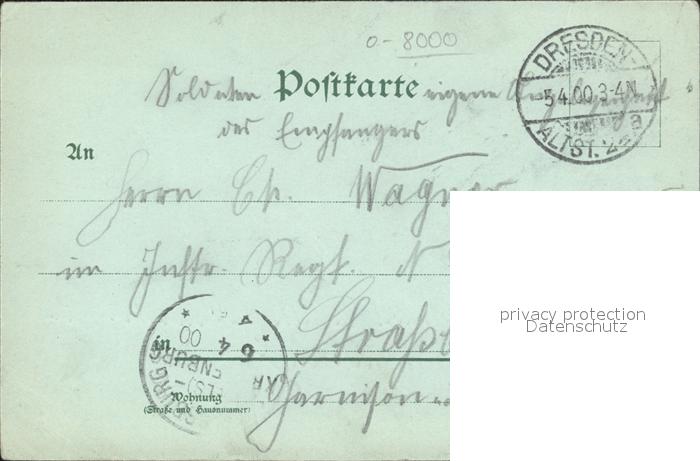 0-8000
Soldaten Postkarte eigene Angelegenheit
des Empfängers
DRESDEN-
5.4.00.3-4N.
ALTST. 24 a
An
Herrn Wagner
im Inftr. Regt. N
Straßb
in
Garnison
6 4 00
Wohnung
(Straße und Hausnummer)
privacy protection
Datenschutz